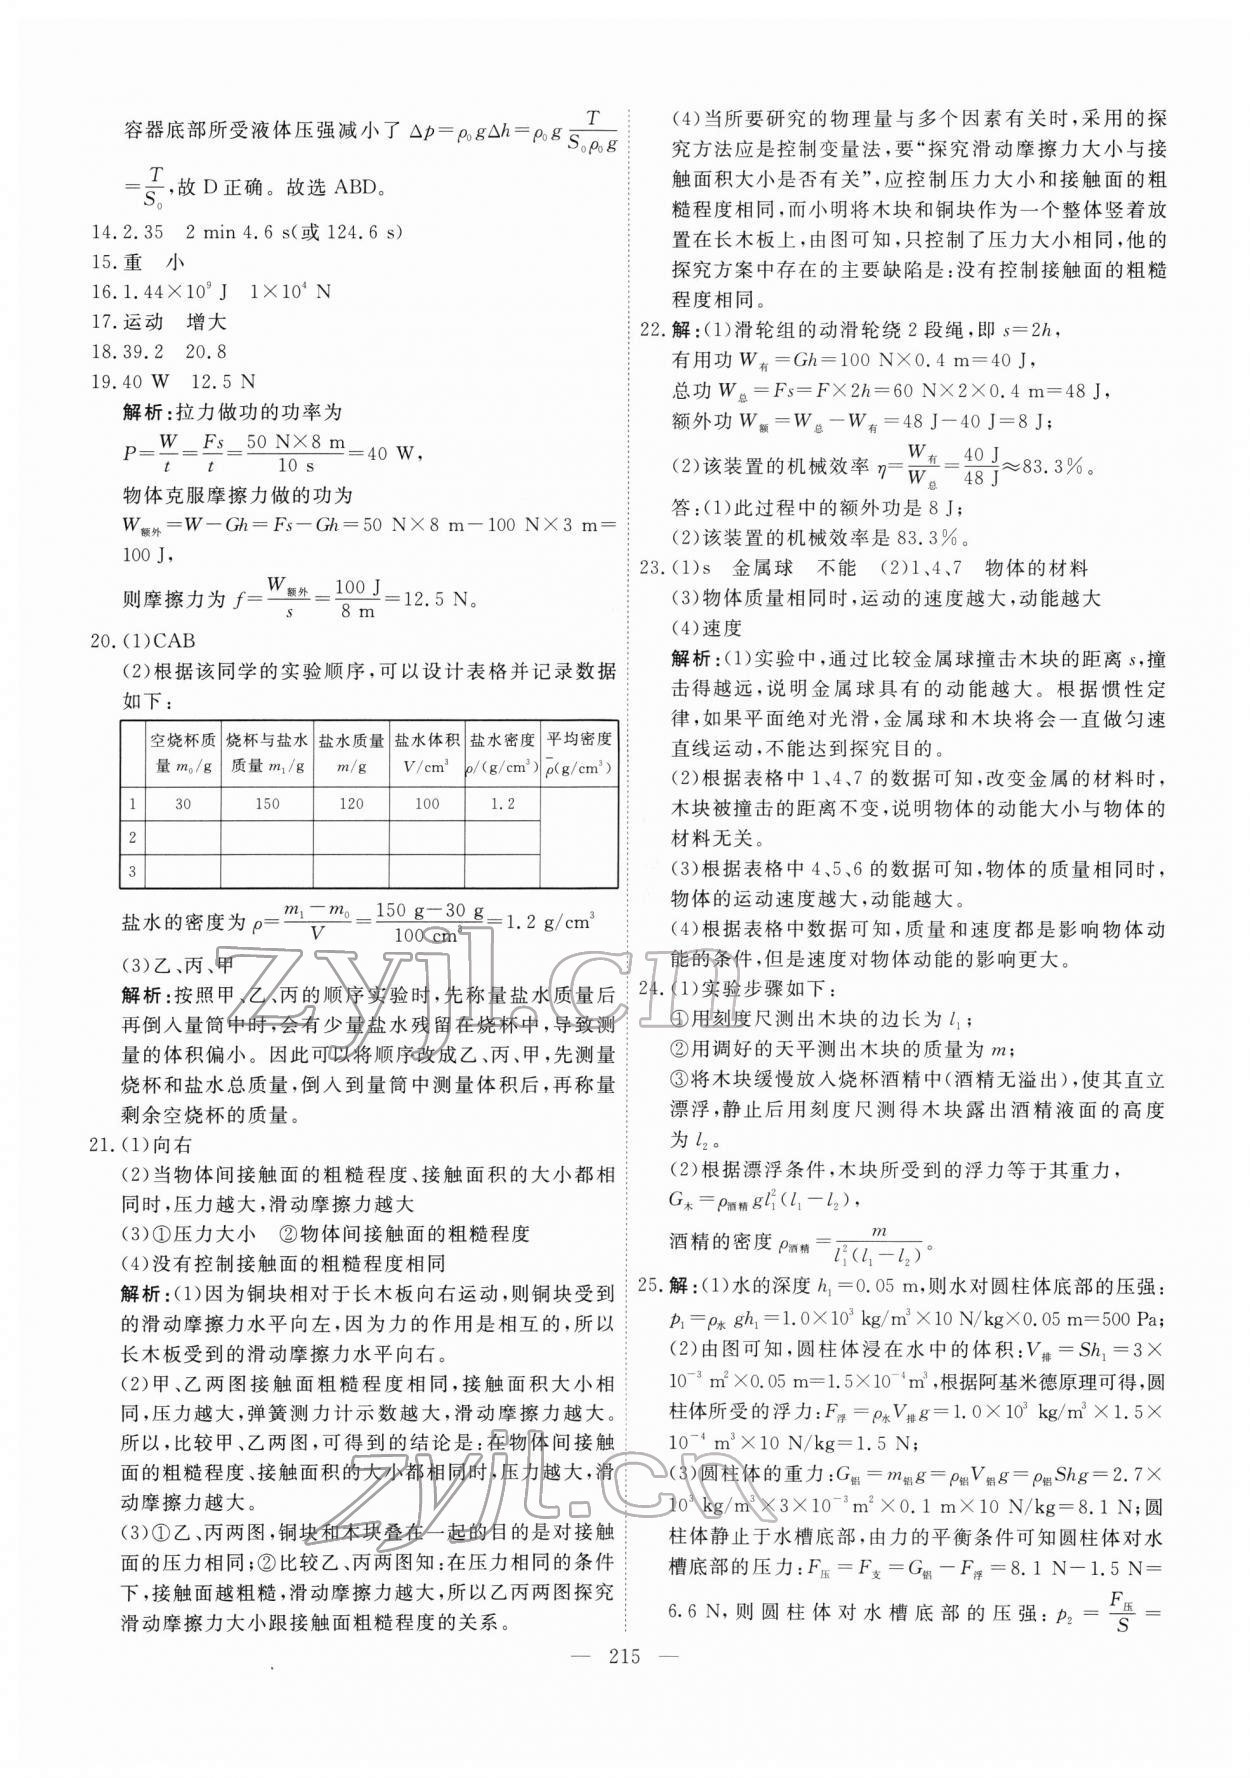 容器底部所受液体压强减小了 Δp=ρ₀gΔh=ρ₀g T/(S₀ρ₀g)
=T/S₀,故 D 正确。故选 ABD。
14.2.35　2 min 4.6 s(或 124.6 s)
15.重　小
16.1.44×10⁹ J　1×10⁴ N
17.运动　增大
18.39.2　20.8
19.40 W　12.5 N
解析:拉力做功的功率为
P=W/t=Fs/t=(50 N×8 m)/(10 s)=40 W,
物体克服摩擦力做的功为
W额外=W-Gh=Fs-Gh=50 N×8 m-100 N×3 m=
100 J,
则摩擦力为 f=W额外/s=100 J/8 m=12.5 N。
20.(1)CAB
(2)根据该同学的实验顺序,可以设计表格并记录数据
如下:
空烧杯质 烧杯与盐水 盐水质量 盐水体积 盐水密度 平均密度
量 m₀/g 质量 m₁/g m/g V/cm³ ρ/(g/cm³) ρ̅(g/cm³)
1 30 150 120 100 1.2
2
3
盐水的密度为 ρ=(m₁-m₀)/V=(150 g-30 g)/(100 cm³)=1.2 g/cm³
(3)乙、丙、甲
解析:按照甲、乙、丙的顺序实验时,先称量盐水质量后
再倒入量筒中时,会有少量盐水残留在烧杯中,导致测
量的体积偏小。因此可以将顺序改成乙、丙、甲,先测量
烧杯和盐水总质量,倒入到量筒中测量体积后,再称量
剩余空烧杯的质量。
21.(1)向右
(2)当物体间接触面的粗糙程度、接触面积的大小都相
同时,压力越大,滑动摩擦力越大
(3)①压力大小　②物体间接触面的粗糙程度
(4)没有控制接触面的粗糙程度相同
解析:(1)因为铜块相对于长木板向右运动,则铜块受到
的滑动摩擦力水平向左,因为力的作用是相互的,所以
长木板受到的滑动摩擦力水平向右。
(2)甲、乙两图接触面粗糙程度相同,接触面积大小相
同,压力越大,弹簧测力计示数越大,滑动摩擦力越大。
所以,比较甲、乙两图,可得到的结论是:在物体间接触
面的粗糙程度、接触面积的大小都相同时,压力越大,滑
动摩擦力越大。
(3)①乙、丙两图,铜块和木块叠在一起的目的是对接触
面的压力相同;②比较乙、丙两图知:在压力相同的条件
下,接触面越粗糙,滑动摩擦力越大,所以乙丙两图探究
滑动摩擦力大小跟接触面粗糙程度的关系。
(4)当所要研究的物理量与多个因素有关时,采用的探
究方法应是控制变量法,要“探究滑动摩擦力大小与接
触面积大小是否有关”,应控制压力大小和接触面的粗
糙程度相同,而小明将木块和铜块作为一个整体竖着放
置在长木板上,由图可知,只控制了压力大小相同,他的
探究方案中存在的主要缺陷是:没有控制接触面的粗糙
程度相同。
22.解:(1)滑轮组的动滑轮绕 2 段绳,即 s=2h,
有用功 W有=Gh=100 N×0.4 m=40 J,
总功 W总=Fs=F×2h=60 N×2×0.4 m=48 J,
额外功 W额=W总-W有=48 J-40 J=8 J;
(2)该装置的机械效率 η=W有/W总=40 J/48 J≈83.3%。
答:(1)此过程中的额外功是 8 J;
(2)该装置的机械效率是 83.3%。
23.(1)s　金属球　不能　(2)1、4、7　物体的材料
(3)物体质量相同时,运动的速度越大,动能越大
(4)速度
解析:(1)实验中,通过比较金属球撞击木块的距离 s,撞
击得越远,说明金属球具有的动能越大。根据惯性定
律,如果平面绝对光滑,金属球和木块将会一直做匀速
直线运动,不能达到探究目的。
(2)根据表格中 1、4、7 的数据可知,改变金属的材料时,
木块被撞击的距离不变,说明物体的动能大小与物体的
材料无关。
(3)根据表格中 4、5、6 的数据可知,物体的质量相同时,
物体的运动速度越大,动能越大。
(4)根据表格中数据可知,质量和速度都是影响物体动
能的条件,但是速度对物体动能的影响更大。
24.(1)实验步骤如下:
①用刻度尺测出木块的边长为 l₁;
②用调好的天平测出木块的质量为 m;
③将木块缓慢放入烧杯酒精中(酒精无溢出),使其直立
漂浮,静止后用刻度尺测得木块露出酒精液面的高度
为 l₂。
(2)根据漂浮条件,木块所受到的浮力等于其重力,
G木=ρ酒精gl₁²(l₁-l₂),
酒精的密度 ρ酒精=m/(l₁²(l₁-l₂))。
25.解:(1)水的深度 h₁=0.05 m,则水对圆柱体底部的压强:
p₁=ρ水gh₁=1.0×10³ kg/m³×10 N/kg×0.05 m=500 Pa;
(2)由图可知,圆柱体浸在水中的体积:V排=Sh₁=3×
10⁻³ m²×0.05 m=1.5×10⁻⁴m³,根据阿基米德原理可得,圆
柱体所受的浮力:F浮=ρ水V排g=1.0×10³ kg/m³×1.5×
10⁻⁴ m³×10 N/kg=1.5 N;
(3)圆柱体的重力:G铝=m铝g=ρ铝V铝g=ρ铝Shg=2.7×
10³ kg/m³×3×10⁻³m²×0.1 m×10 N/kg=8.1 N;圆
柱体静止于水槽底部,由力的平衡条件可知圆柱体对水
槽底部的压力:F压=F支=G铝-F浮=8.1 N-1.5 N=
6.6 N,则圆柱体对水槽底部的压强:p₂=F压/S=
— 215 —
zyjl.cn
zyjl.cn